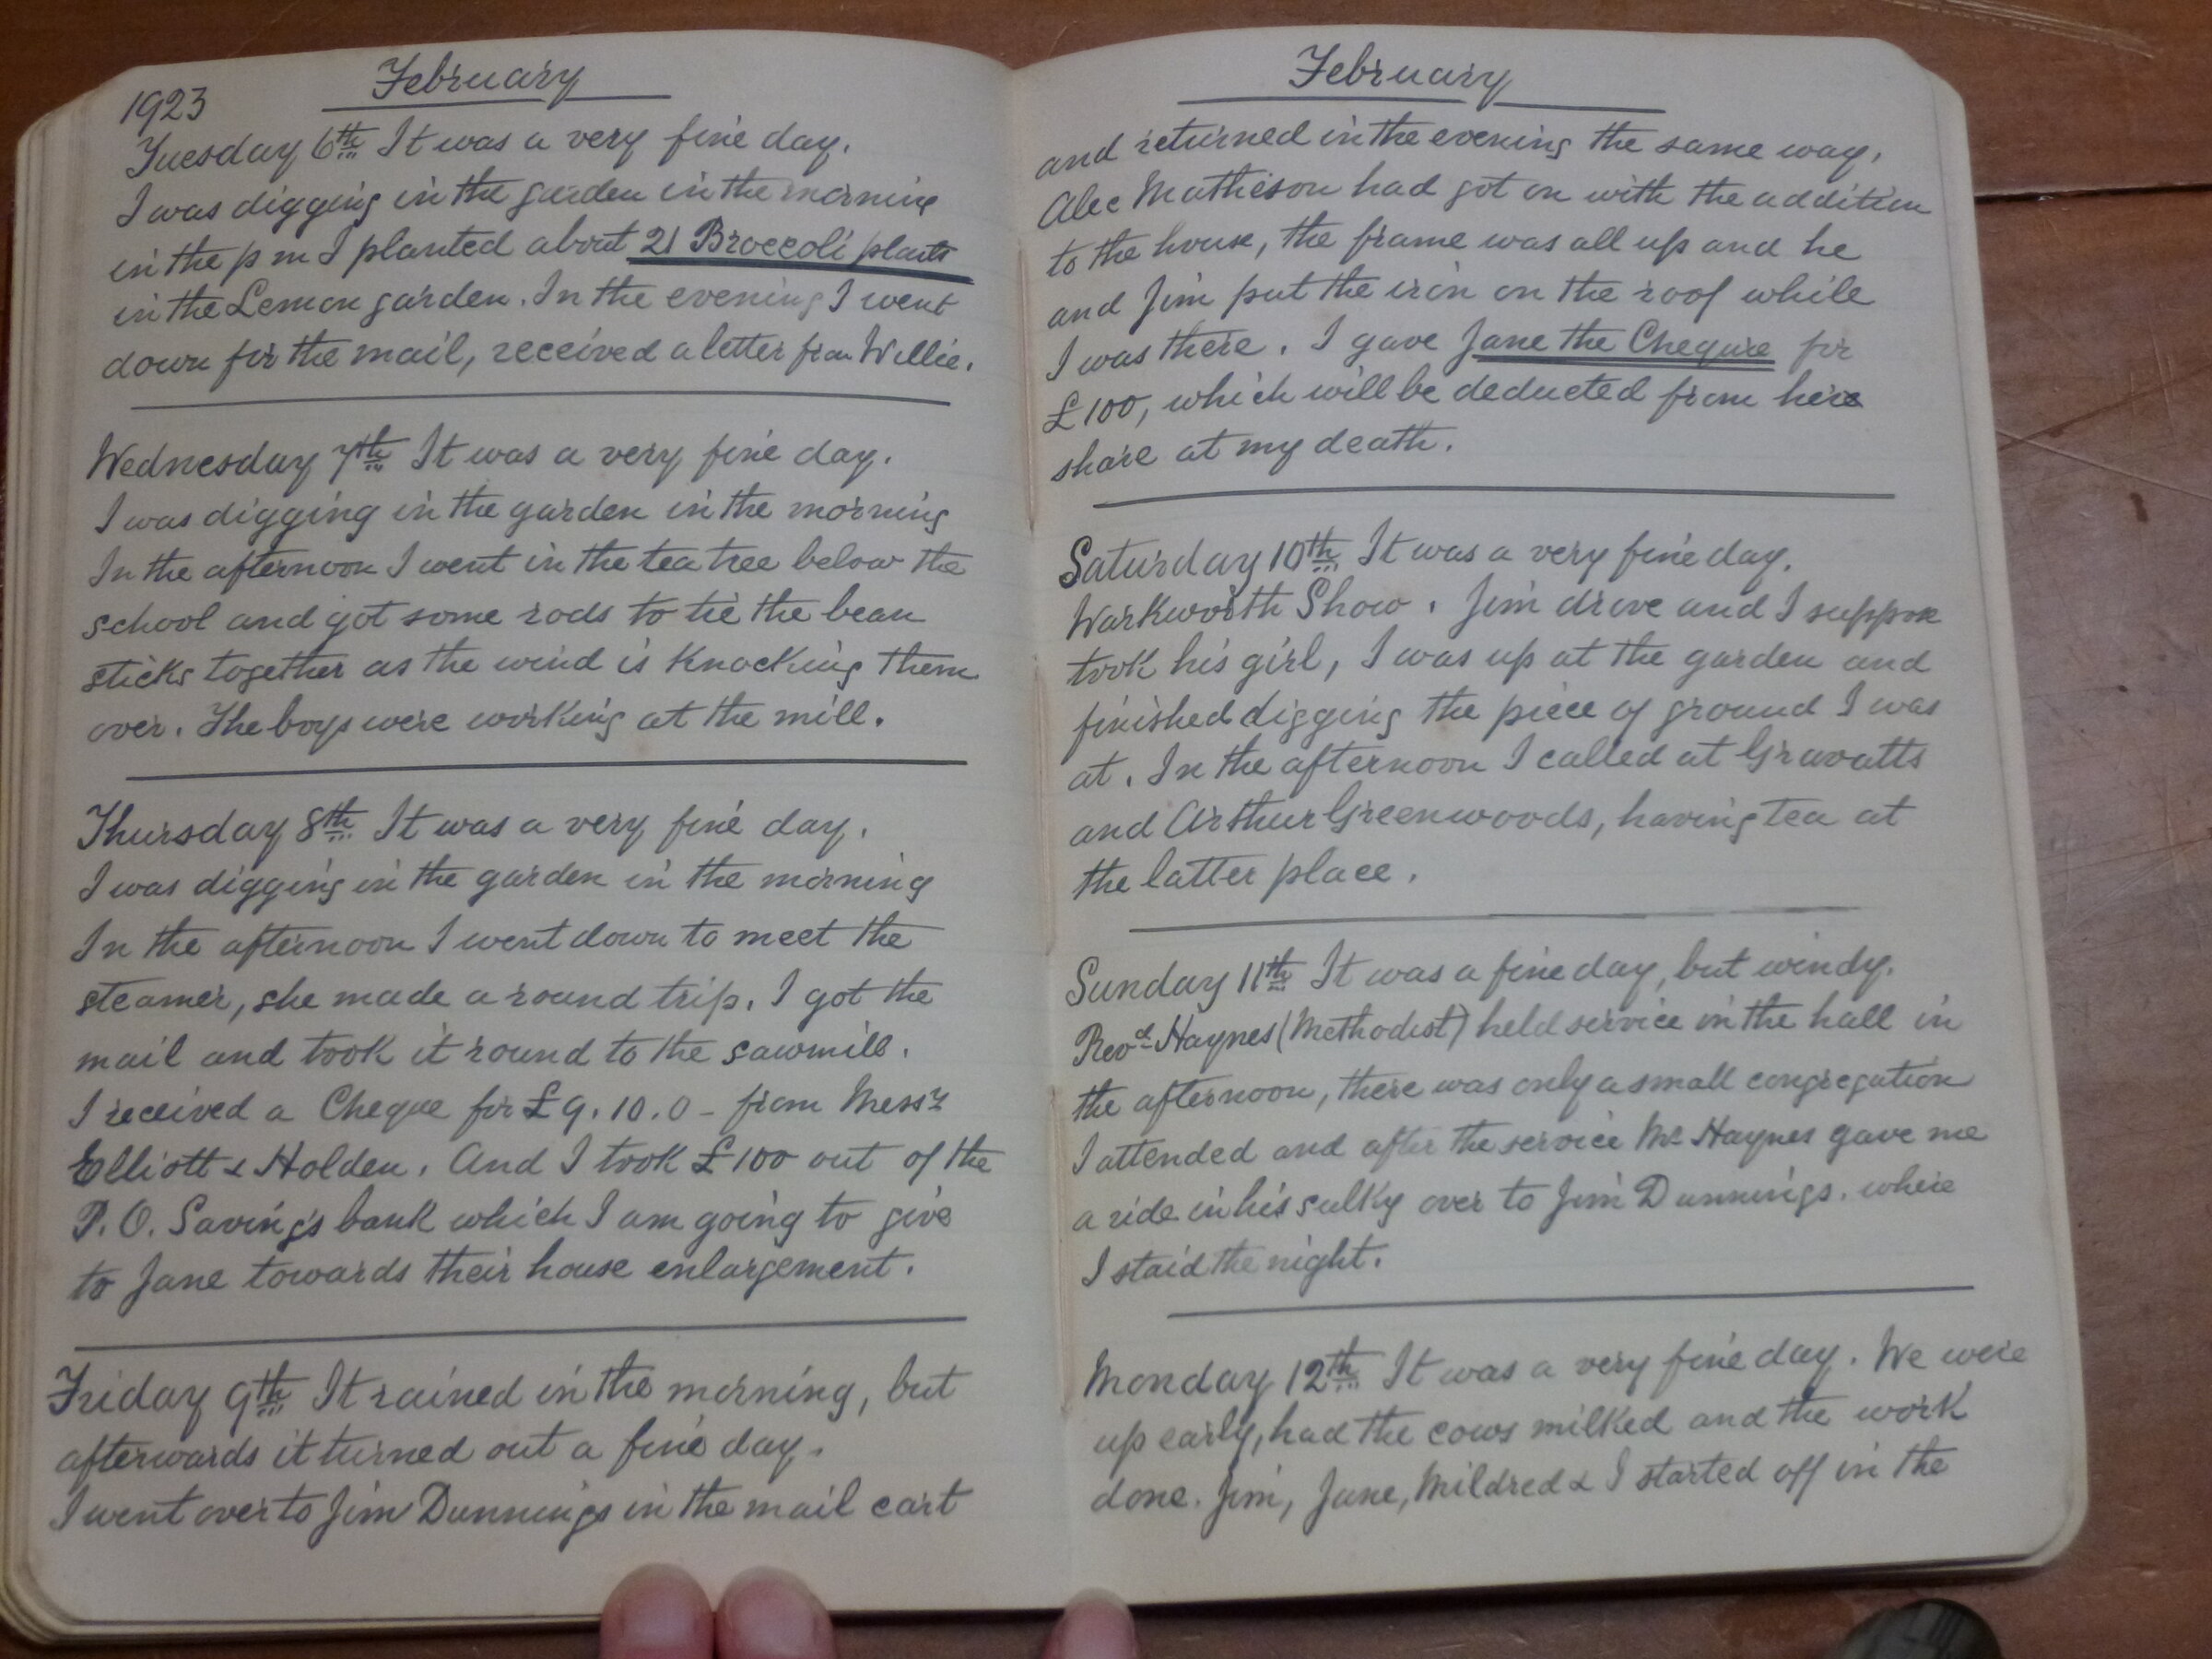 1923
February
Tuesday 6th It was a very fine day.
I was digging in the garden in the morning
in the p m I planted about 21 Broccoli plants
in the Lemon garden. In the evening I went
down for the mail, received a letter from Willie.
Wednesday 7th It was a very fine day.
I was digging in the garden in the morning
In the afternoon I went in the tea tree below the
school and got some rods to tie the bean
sticks together as the wind is knocking them
over. The boys were working at the mill.
Thursday 8th It was a very fine day.
I was digging in the garden in the morning
In the afternoon I went down to meet the
steamer, she made a round trip. I got the
mail and took it round to the sawmill.
I received a Cheque for £9.10.0 - from Messrs
Elliott & Holden. And I took £100 out of the
P.O. Savings bank which I am going to give
to Jane towards their house enlargement.
Friday 9th It rained in the morning, but
afterwards it turned out a fine day.
I went over to Jim Dunnings in the mail cart
February
and returned in the evening the same way.
Alec Matheson had got on with the addition
to the house, the frame was all up and he
and Jim put the iron on the roof while
I was there. I gave Jane the Cheque for
£100, which will be deducted from her
share at my death.
Saturday 10th It was a very fine day.
Warkworth Show. Jim drove and I suppose
took his girl, I was up at the garden and
finished digging the piece of ground I was
at. In the afternoon I called at Gravatts
and Arthur Greenwoods, having tea at
the latter place.
Sunday 11th It was a fine day, but windy.
Revd Haynes (Methodist) held service in the hall in
the afternoon, there was only a small congregation
I attended and after the service Mr Haynes gave me
a ride in his sulky over to Jim Dunnings. where
I staid the night.
Monday 12th It was a very fine day. We were
up early, had the cows milked and the work
done. Jim, Jane, Mildred & I started off in the